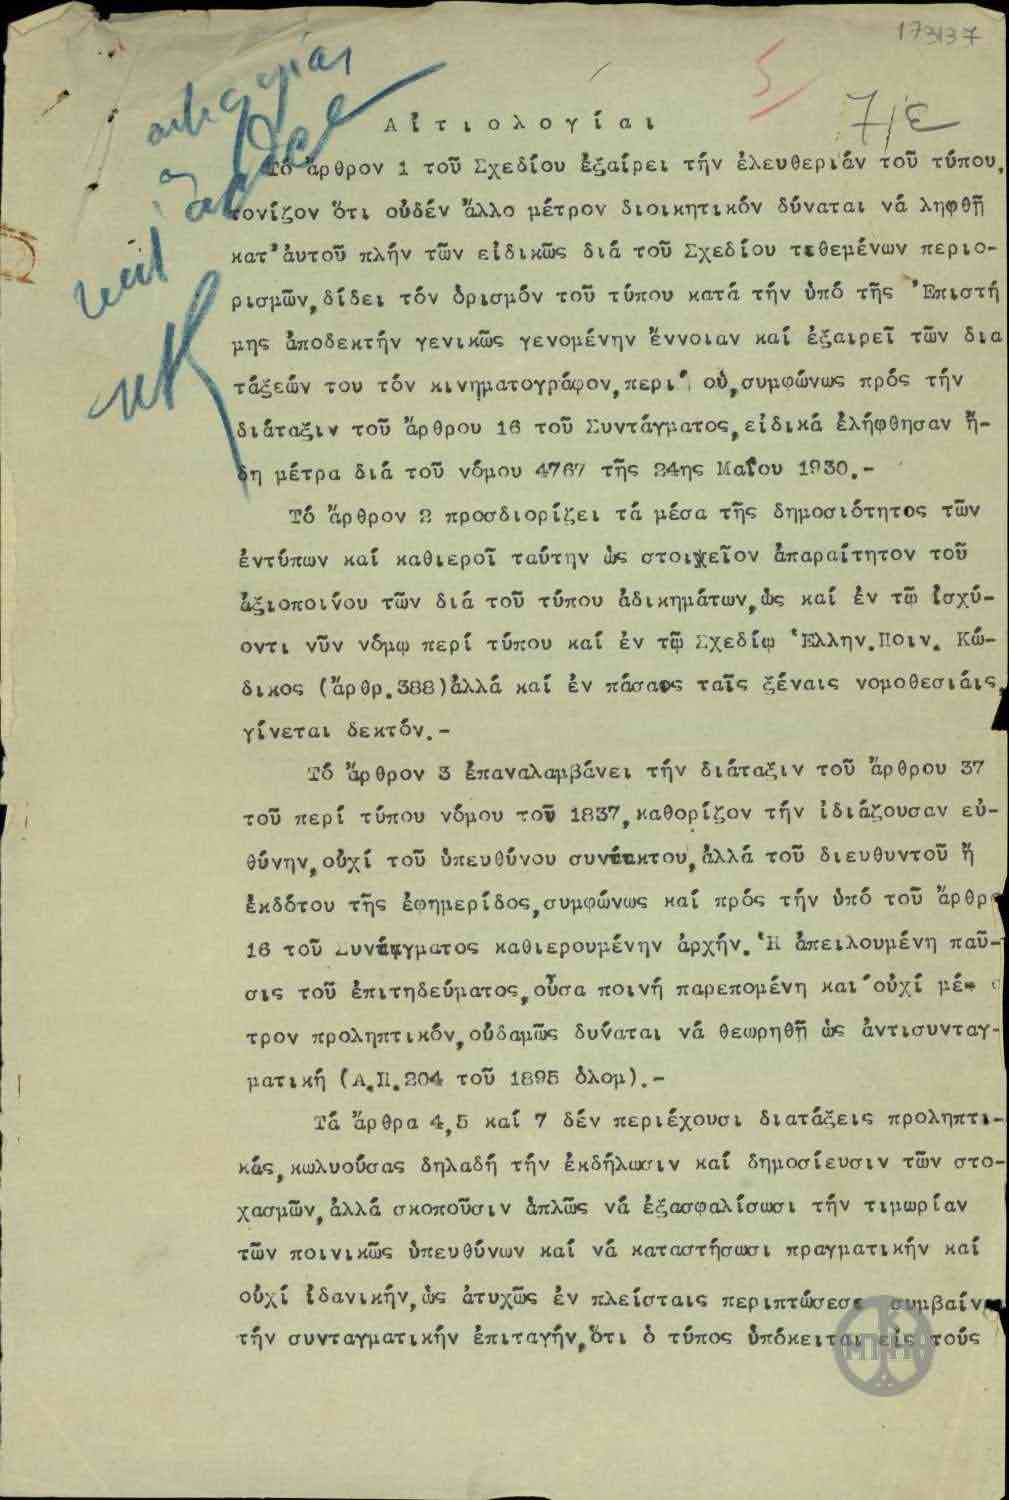 173137
5
7/ε
Αἰτιολογίαι
Τό ἄρθρον 1 τοῦ Σχεδίου ἐξαίρει τήν ἐλευθεριάν τοῦ τύπου,
τονίζον ὅτι οὐδέν ἄλλο μέτρον διοικητικόν δύναται νά ληφθῇ
κατ᾽ αὐτοῦ πλήν τῶν εἰδικῶς διά τοῦ Σχεδίου τεθεμένων περιο-
ρισμῶν, δίδει τόν ὁρισμόν τοῦ τύπου κατά τήν ὑπό τῆς Ἐπιστή
μης ἀποδεκτήν γενικῶς γενομένην ἔννοιαν καί ἐξαιρεῖ τῶν δια
τάξεών του τόν κινηματογράφον, περί οὗ, συμφώνως πρός τήν
διάταξιν τοῦ ἄρθρου 16 τοῦ Συντάγματος, εἰδικά ἐλήφθησαν ἤ-
δη μέτρα διά τοῦ νόμου 4767 τῆς 24ης Μαΐου 1930.-
Τό ἄρθρον 2 προσδιορίζει τά μέσα τῆς δημοσιότητος τῶν
ἐντύπων καί καθιεροῖ ταύτην ὡς στοιχεῖον ἀπαραίτητον τοῦ
ἀξιοποίνου τῶν διά τοῦ τύπου ἀδικημάτων, ὡς καί ἐν τῷ ἰσχύ-
οντι νῦν νόμῳ περί τύπου καί ἐν τῷ Σχεδίῳ Ἑλλην. Ποιν. Κώ-
δικος (ἄρθρ. 388) ἀλλά καί ἐν πάσαις ταῖς ξέναις νομοθεσίαις,
γίνεται δεκτόν.-
Τό ἄρθρον 3 ἐπαναλαμβάνει τήν διάταξιν τοῦ ἄρθρου 37
τοῦ περί τύπου νόμου τοῦ 1837, καθορίζον τήν ἰδιάζουσαν εὐ-
θύνην, οὐχί τοῦ ὑπευθύνου συντάκτου, ἀλλά τοῦ διευθυντοῦ ἤ
ἐκδότου τῆς ἐφημερίδος, συμφώνως καί πρός τήν ὑπό τοῦ ἄρθρ
16 τοῦ Συντάγματος καθιερουμένην ἀρχήν. Ἡ ἀπειλουμένη παῦ-
σις τοῦ ἐπιτηδεύματος, οὖσα ποινή παρεπομένη καί οὐχί μέ-
τρον προληπτικόν, οὐδαμῶς δύναται νά θεωρηθῇ ὡς ἀντισυνταγ-
ματική (Α.Π. 204 τοῦ 1895 ὁλομ).-
Τά ἄρθρα 4, 5 καί 7 δέν περιέχουσι διατάξεις προληπτι-
κάς, κωλυούσας δηλαδή τήν ἐκδήλωσιν καί δημοσίευσιν τῶν στο-
χασμῶν, ἀλλά σκοποῦσιν ἁπλῶς νά ἐξασφαλίσωσι τήν τιμωρίαν
τῶν ποινικῶς ὑπευθύνων καί νά καταστήσωσι πραγματικήν καί
οὐχί ἰδανικήν, ὡς ἀτυχῶς ἐν πλείσταις περιπτώσεσι συμβαίνει
τήν συνταγματικήν ἐπιταγήν, ὅτι ὁ τύπος ὑπόκειται εἰς τούς